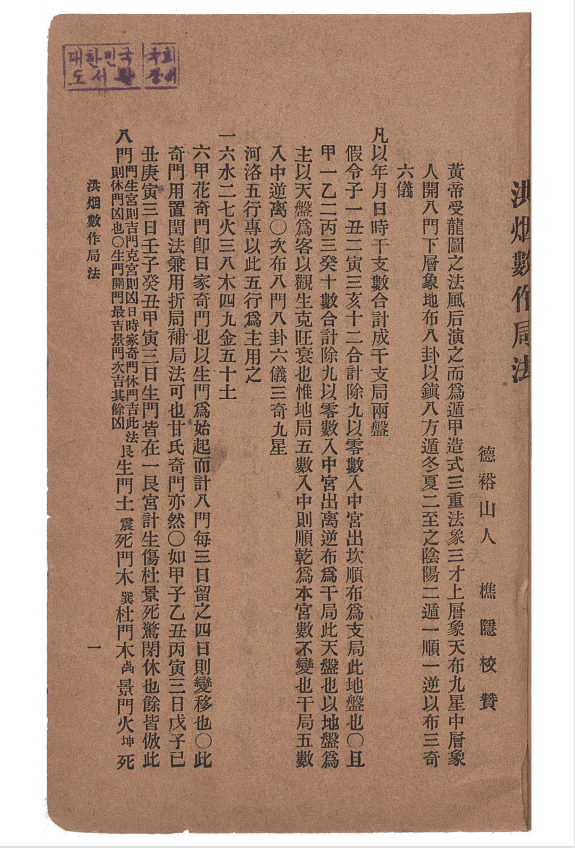 대한민국 국회
도서관 장서
洪烟數作局法
德裕山人 樵隱 校贊
黃帝受龍圖之法風后演之而爲遁甲造式三重法象三才上層象天布九星中層象
人開八門下層象地布八卦以鎭八方遁冬夏二至之陰陽二遁一順一逆以布三奇
六儀
凡以年月日時干支數合計成干支局兩盤
假令子一丑二寅三亥十二合計除九以零數入中宮出坎順布爲支局此地盤也〇且
甲一乙二丙三癸十數合計除九以零數入中宮出离逆布爲干局此天盤也以地盤爲
主以天盤爲客以觀生克旺衰也惟地局五數入中則順乾爲本宮數不變也干局五數
入中逆离〇次布八門八卦六儀三奇九星
河洛五行專以此五行爲主用之
一六水二七火三八木四九金五十土
六甲花奇門卽日家奇門也以生門爲始起而計八門每三日留之四日則變移也〇此
奇門用置閏法兼用折局補局法可也甘氏奇門亦然〇如甲子乙丑丙寅三日戊子己
丑庚寅三日壬子癸丑甲寅三日生門皆在一艮宮計生傷杜景死驚開休也餘皆倣此
八門門生宮則吉門克宮則凶日時家奇門休門吉此法
則休門凶也〇生門開門最吉景門次吉其餘凶
艮生門土 震死門木 巽杜門木 离景門火 坤死
洪烟數作局法
一